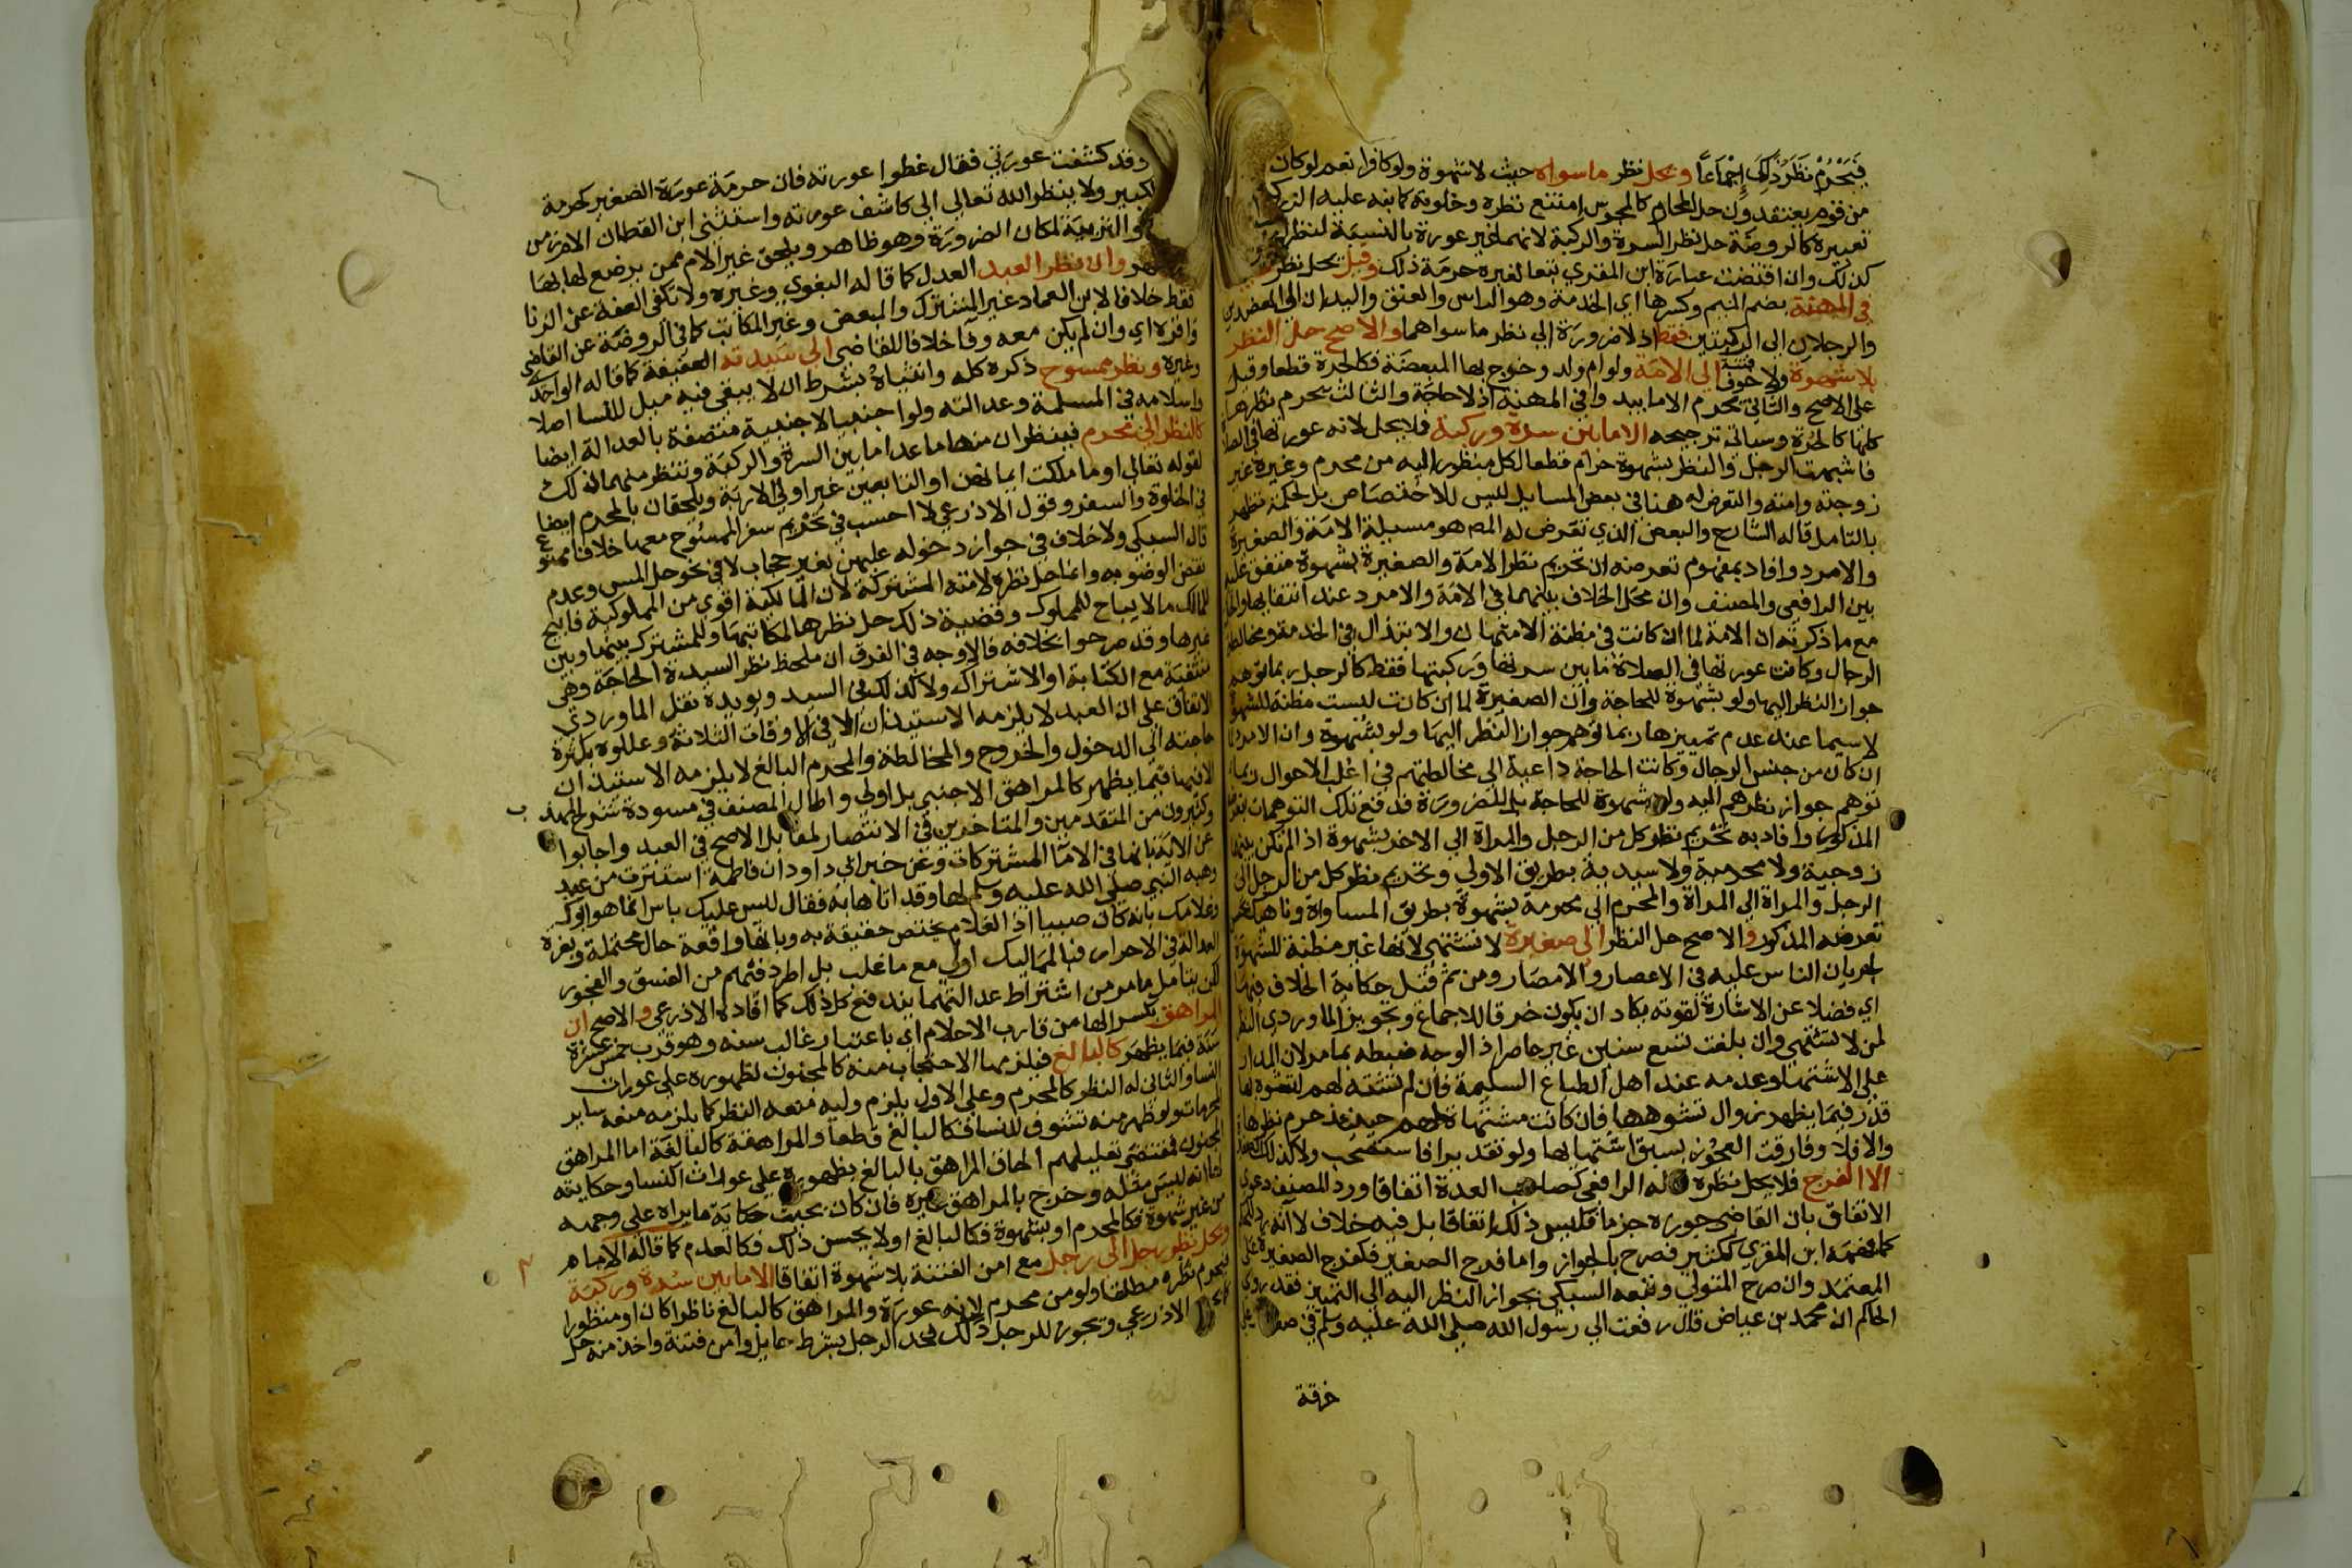 فَيَحْرُمُ نَظَرُ ذَلِكَ إِجْمَاعًا ويحل نظر ما سواه حيث لا شهوة ولو كافرا نعم لو كان
من قوم يعتقدون حل المحارم كالمجوس امتنع نظره وخلوته كما نبه عليه الزركشي
تعبيره كالروضة حل نظر السرة والركبة لانهما غير عورة بالنسبة لنظر
كذلك وان اقتضت عبارة ابن المقري تبعا لغيره حرمة ذلك وقيل يحل نظر
في المهنة بضم الميم وكسرها اي الخدمة وهو الراس والعنق واليدان الى العضدين
والرجلان الى الركبتين فقط اذ لا ضرورة الى نظر ما سواهما والاصح حل النظر
بلا شهوة ولا خوف فتنة الى الامة ولو ام ولد وخرج بها المبعضة فكالحرة قطعا وقيل
على الاصح والثاني يحرم الا ما يبدو في المهنة اذ لا حاجة والثالث يحرم نظرها
كلها كالحرة وسياتي ترجيحه الا ما بين سرة وركبة فلا يحل لانه عورتها في الصلاة
فاشبهت الرجل والنظر بشهوة حرام قطعا لكل منظور اليه من محرم وغيره غير
زوجته وامته والتعرض له هنا في بعض المسايل ليس للاختصاص بل لحكمة تظهر
بالتامل قاله الشارح والبعض الذي تعرض له المص هو مسيلة الامة والصغيرة
والامرد وافاد بمفهوم تعرضه ان تحريم نظر الامة والصغيرة بشهوة متفق عليه
بين الرافعي والمصنف وان محل الخلاف بينهما في الامة والامرد عند انتفائها
مع ما ذكر ته ان الامة لما ان كانت في مظنة الامتهان والابتذال في الخدمة ومخالطة
الرجال وكانت عورتها في الصلاة ما بين سرتها وركبتها فقط كالرجل ربما توهم
جواز النظر اليها ولو بشهوة للحاجة وان الصغيرة لما ان كانت ليست مظنة للشهوة
لا سيما عند عدم تمييزها ربما توهم جواز النظر اليها ولو بشهوة وان الامرد لما
ان كان من جنس الرجال وكانت الحاجة داعية الى مخالطتهم في اغلب الاحوال ربما
توهم جواز نظرهم اليه ولو بشهوة للحاجة بل للضرورة فدفع تلك التوهمات
المذكور وافاد به تحريم نظر كل من الرجل والمراة الى الاخر بشهوة اذ لم تكن بينهما
زوجية ولا محرمية ولا سيدية بطريق الاولى وتحريم نظر كل من الرجل الى
الرجل والمراة الى المراة والمحرم الى محرمه بشهوة بطريق المساواة وناهيك
تعرضه المذكور والاصح حل النظر الى صغيرة لا تشتهى لانها غير مظنة للشهوة
لجريان الناس عليه في الاعصار والامصار ومن ثم قيل حكاية الخلاف فيها
اي فضلا عن الاشارة لقوته يكاد ان يكون خرقا للاجماع وتجويز الماوردي النظر
لمن لا تشتهي وان بلغت تسع سنين غير حاصر اذ الوجه ضبطه بما مر لان المدار
على الاشتها وعدمه عند اهل الطباع السليمة فان لم تشته لهم لتشوه بها
قدر فيما يظهر زوال تشوهها فان كانت مشتهاة لهم حينئذ حرم نظرها
والا فلا وفارقت العجوز بسبق اشتهايها ولو تقديرا فاستصحب ولا كذلك
الا الفرج فلا يحل نظره قاله الرافعي كصاحب العدة اتفاقا ورد المصنف دعوى
الاتفاق بان القاضي جوزه جزما فليس ذلك اتفاقا بل فيه خلاف لا انه رد
كما فهمه ابن المقري ككثير فصرح بالجواز واما فرج الصغير فكفرج الصغيرة على
المعتمد وان صرح المتولي وتبعه السبكي بجواز النظر اليه الى التمييز فقد روى
الحاكم ان محمد بن عياض قال رفعت الى رسول الله صلى الله عليه وسلم في صغري
خرقة
وقد كشفت عورتي فقال غطوا عورته فان حرمة عورة الصغير كحرمة
الكبير ولا ينظر الله تعالى الى كاشف عورته واستثنى ابن القطان الام زمن
والتربية لمكان الضرورة وهو ظاهر ويلحق غير الام ممن يرضع لها بها
وان نظر العبد العدل كما قاله البغوي وغيره ولا تكفي العفة عن الزنا
فقط خلافا لابن العماد غير المشترك والمبعض وغير المكاتب كما في الروضة عن القاضي
واقره اي وان لم يكن معه وفا خلافا للقاضي الى سيدته العفيفة كما قاله الواحدي
وغيره ونظر ممسوح ذكره كله وانثياه بشرط ان لا يبقى فيه ميل للنسا اصلا
واسلامه في المسلمة وعدالته ولو اجنبيا لاجنبية متصفة بالعدالة ايضا
كالنظر الى محرم فينظران منها ما عدا ما بين السرة والركبة وتنظر منهما ذلك
لقوله تعالى او ما ملكت ايمانهن او التابعين غير اولي الاربة ويلحقان بالمحرم ايضا
في الخلوة والسفر وقول الاذرعي لا احسب في تحريم سفر الممسوح معها خلافا ممنوع
قال السبكي ولا خلاف في جواز دخوله عليهن بغير حجاب لا في نحو حل المس وعدم
نقض الوضو به وانما حل نظره لامته المشتركة لان المالكية اقوى من المملوكية فابيح
للمالك ما لا يباح للمملوك وقضية ذلك حل نظرها لمكاتبها وللمشترك بينها وبين
غيرها وقد صرحوا بخلافه فالاوجه في الفرق ان ملحظ نظر السيدة الحاجة وهي
منتفية مع الكتابة او الاشتراك ولا كذلك في السيد ويويده نقل الماوردي
الاتفاق على ان العبد لا يلزمه الاستيذان الا في الاوقات الثلاثة وعللوه بكثرة
حاجته الى الدخول والخروج والمخالطة والمحرم البالغ لا يلزمه الاستيذان
الا فيها فيما يظهر كالمراهق الاجنبي بل اولى واطال المصنف في مسودة شرح المهذب
وكثيرون من المتقدمين والمتاخرين في الانتصار لمقابل الاصح في العبد واجابوا
عن الاية بانها في الاما المشتركات وعن خبر ابي داود ان فاطمة استترت من عبد
وهبه النبي صلى الله عليه وسلم لها وقد اتاها به فقال ليس عليك باس انما هو ابوك
وغلامك بانه كان صبيا اذ الغلام يختص حقيقة به وبانها واقعة حال محتملة وبعزة
العدالة في الاحرار فبالمماليك اولى مع ما غلب بل اطرد فيهم من الفسق والفجور
لكن بتامل ما مر من اشتراط عدالتهما يندفع كل ذلك كما افاده الاذرعي والاصح ان
المراهق بكسر الها من قارب الاحلام اي باعتبار غالب سنه وهو قرب خمس عشرة
سنة فيما يظهر كالبالغ فيلزمها الاحتجاب منه كالمجنون لظهوره على عورات
النسا والثاني له النظر كالمحرم وعلى الاول يلزم وليه منعه النظر كما يلزمه منعه ساير
المحرمات ولو ظهر منه تشوف للنسا فكالبالغ قطعا والمراهقة كالبالغة اما المراهق
المجنون فمقتضى تعليلهم الحاق المراهق بالبالغ بظهوره على عورات النسا وحكايته
لها انه ليس مثله وخرج بالمراهق غيره فان كان بحيث حكاية ما يراه على وجهه
من غير شهوة فكالمحرم او بشهوة فكالبالغ او لا يحسن ذلك فكالعدم كما قاله الامام
ويحل نظر رجل الى رجل مع امن الفتنة بلا شهوة اتفاقا الا ما بين سرة وركبة
فيحرم نظره مطلقا ولو من محرم لانه عورة والمراهق كالبالغ ناظرا كان او منظورا
الاذرعي ويجوز للرجل دلك فخذ الرجل بشرط حايل وامن فتنة واخذ منه حل